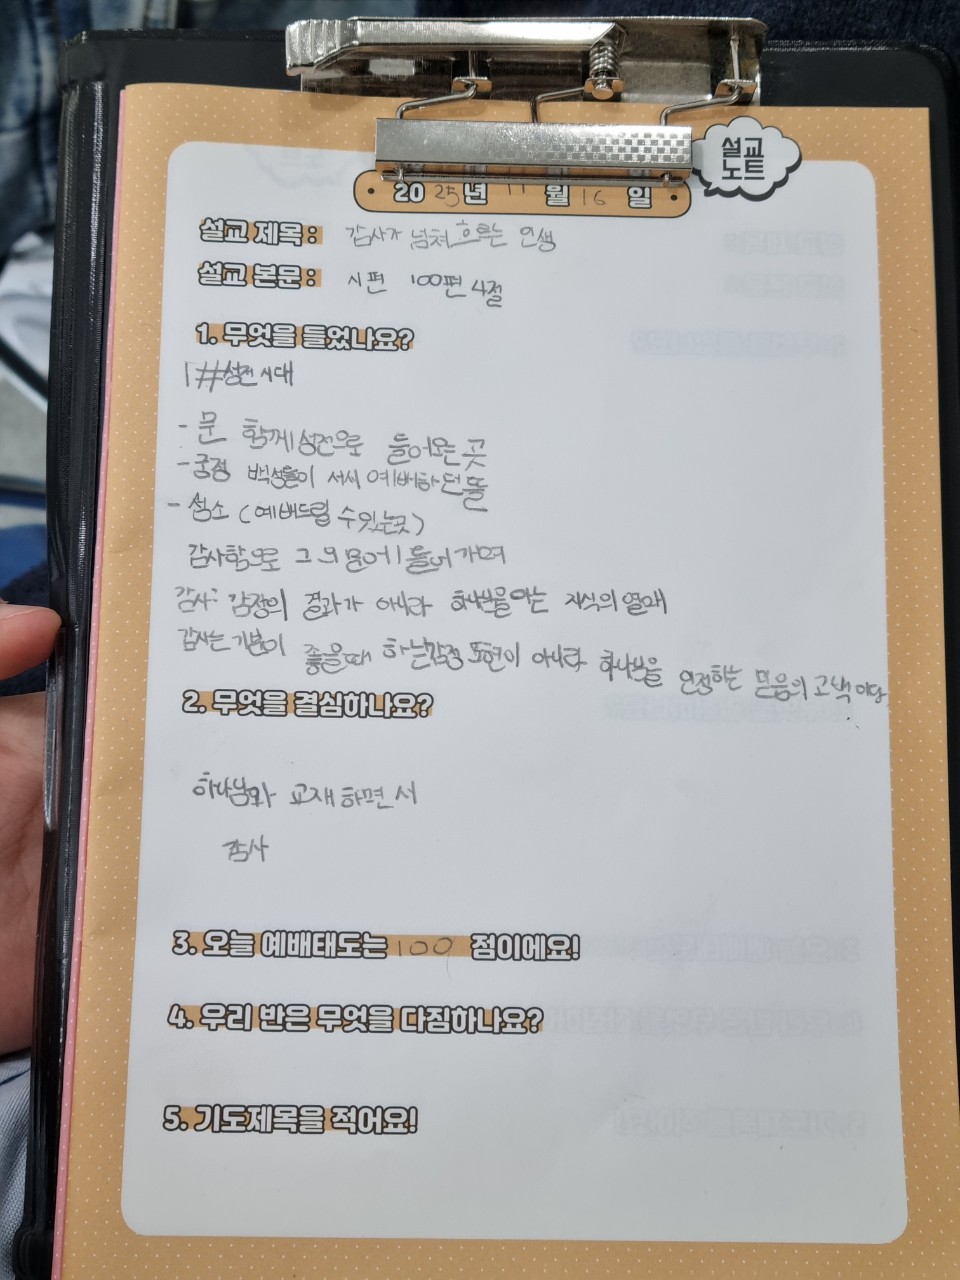 설교
노트
2025년 11월 16일
설교 제목: 감사가 넘쳐 흐르는 인생
설교 본문: 시편 100편 4절
1. 무엇을 들었나요?
성전시대
- 문 함께 성전으로 들어오는 곳
- 궁정 백성들이 서서 예배하던 뜰
- 성소 (예배드릴 수 있는곳)
감사함으로 그의 문에 들어가며
감사: 감정의 결과가 아니라 하나님을 아는 지식의 열매
감사는 기분이 좋을때 하는 감정 표현이 아니라 하나님을 인정하는 믿음의 고백이다.
2. 무엇을 결심하나요?
하나님와 교재하면서
감사
3. 오늘 예배태도는 점이에요!
4. 우리 반은 무엇을 다짐하나요?
5. 기도제목을 적어요!